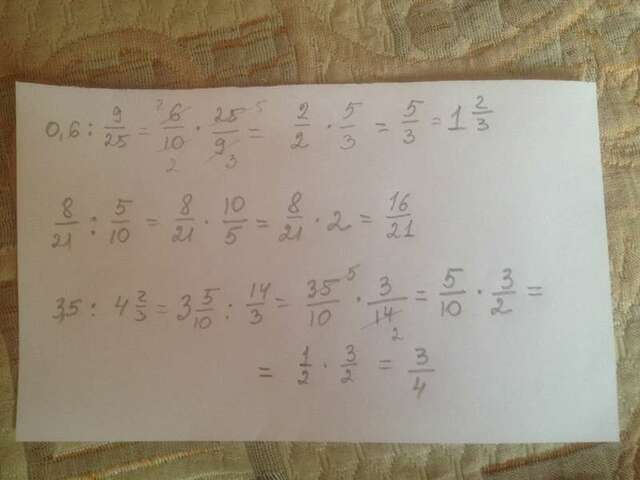 0,6 : 9/25 = 6/10 · 25/9 = 2/2 · 5/3 = 5/3 = 1 2/3
8/21 : 5/10 = 8/21 · 10/5 = 8/21 · 2 = 16/21
3,5 : 4 2/3 = 3 5/10 : 14/3 = 35/10 · 3/14 = 5/10 · 3/2 =
= 1/2 · 3/2 = 3/4